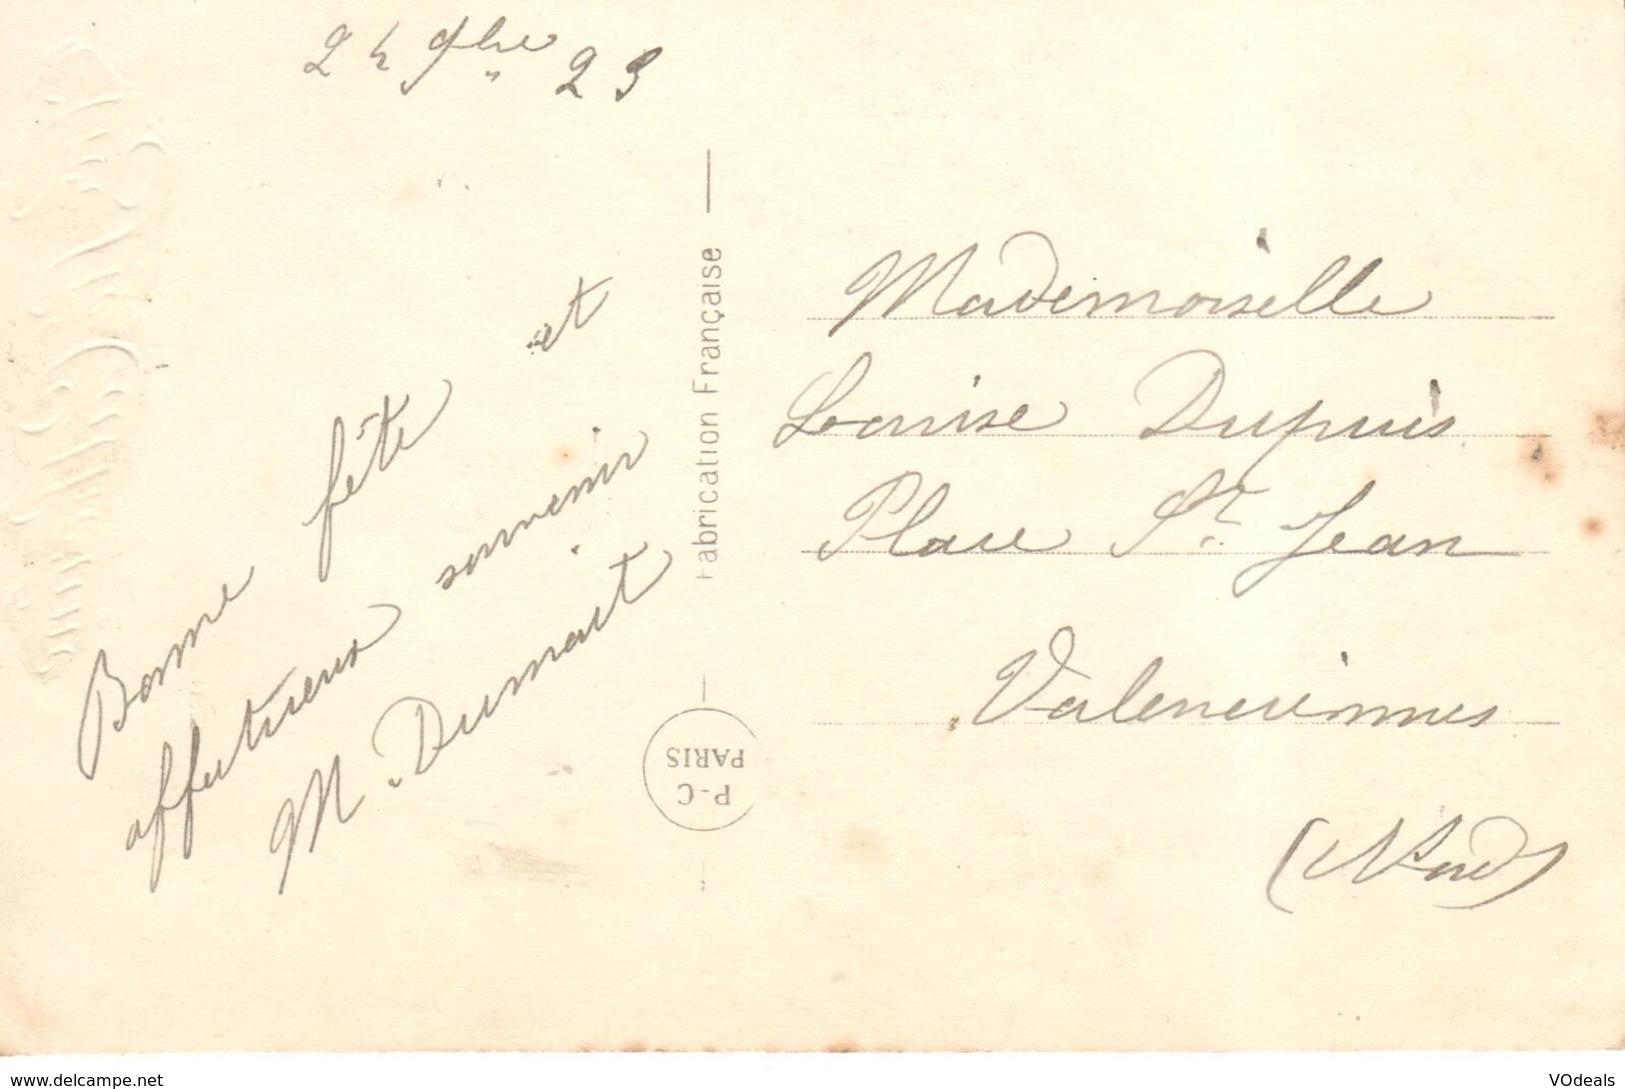 24 9bre 23
Bonne fête et
affectueux souvenir
M. Dumart
Fabrication Française
P-C
PARIS
Mademoiselle
Louise Dupuis
Place St Jean
Valenciennes
(Nord)
www.delcampe.net
VOdeals